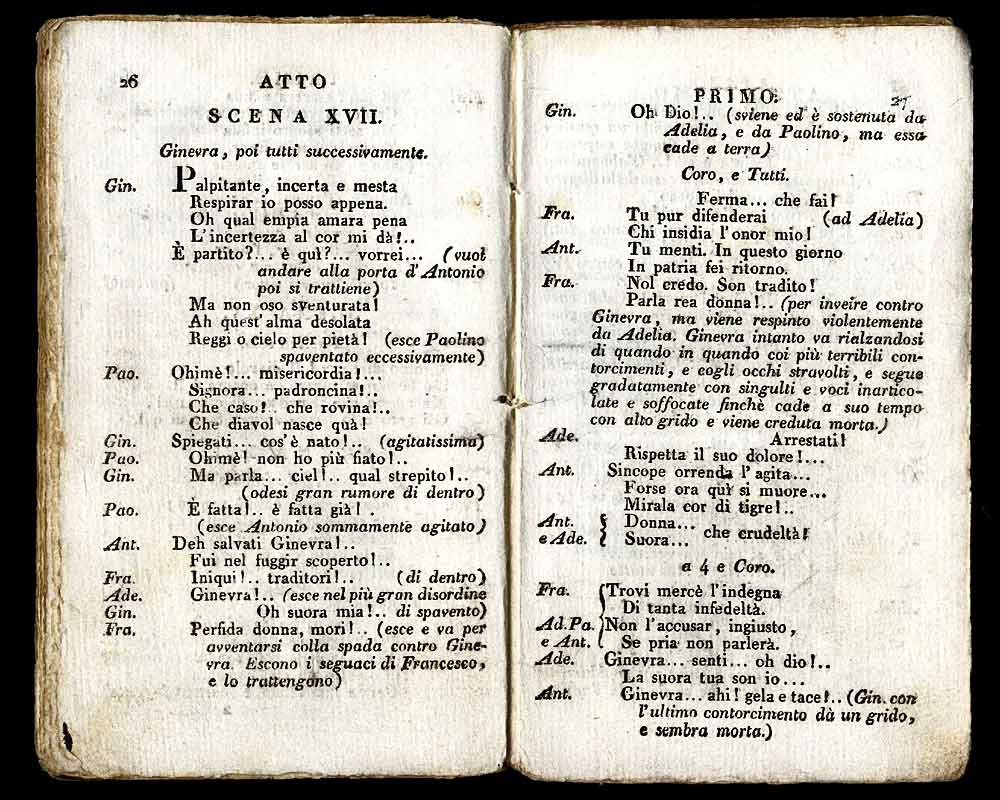 26 ATTO
SCENA XVII.
Ginevra, poi tutti successivamente.
Gin. Palpitante, incerta e mesta
Respirar io posso appena.
Oh qual empia amara pena
L'incertezza al cor mi dà!..
È partito?... è quì?... vorrei... (vuol
andare alla porta d'Antonio
poi si trattiene)
Ma non oso sventurata!
Ah quest'alma desolata
Reggi o cielo per pietà! (esce Paolino
spaventato eccessivamente)
Pao. Ohimè!... misericordia!...
Signora... padroncina!..
Che caso!.. che rovina!..
Che diavol nasce quà!
Gin. Spiegati... cos'è nato!.. (agitatissima)
Pao. Ohimè! non ho più fiato!..
Gin. Ma parla... ciel!.. qual strepito!..
(odesi gran rumore di dentro)
Pao. È fatta!.. è fatta già! .
(esce Antonio sommamente agitato)
Ant. Deh salvati Ginevra!..
Fui nel fuggir scoperto!..
Fra. Iniqui!.. traditori!.. (di dentro)
Ade. Ginevra!.. (esce nel più gran disordine
Gin. Oh suora mia!.. di spavento)
Fra. Perfida donna, mori!.. (esce e va per
avventarsi colla spada contro Gine-
vra. Escono i seguaci di Francesco,
e lo trattengono)
PRIMO. 27
Gin. Oh Dio!.. (sviene ed è sostenuta da
Adelia, e da Paolino, ma essa
cade a terra)
Coro, e Tutti.
Ferma... che fai!
Fra. Tu pur difenderai (ad Adelia)
Chi insidia l'onor mio!
Ant. Tu menti. In questo giorno
In patria fei ritorno.
Fra. Nol credo. Son tradito!
Parla rea donna!.. (per inveire contro
Ginevra, ma viene respinto violentemente
da Adelia. Ginevra intanto va rialzandosi
di quando in quando coi più terribili con-
torcimenti, e cogli occhi stravolti, e segue
gradatamente con singulti e voci inartico-
late e soffocate finchè cade a suo tempo
con alto grido e viene creduta morta.)
Ade. Arrestati!
Rispetta il suo dolore!...
Ant. Sincope orrenda l'agita...
Forse ora quì si muore...
Mirala cor di tigre!..
Ant. { Donna... che crudeltà!
e Ade. { Suora...
a 4 e Coro.
Fra. Trovi mercè l'indegna
Di tanta infedeltà.
Ad. Pa. Non l'accusar, ingiusto,
e Ant. Se pria non parlerà.
Ade. Ginevra... senti... oh dio!..
La suora tua son io...
Ant. Ginevra... ahi! gela e tace!.. (Gin. con
l'ultimo contorcimento dà un grido,
e sembra morta.)